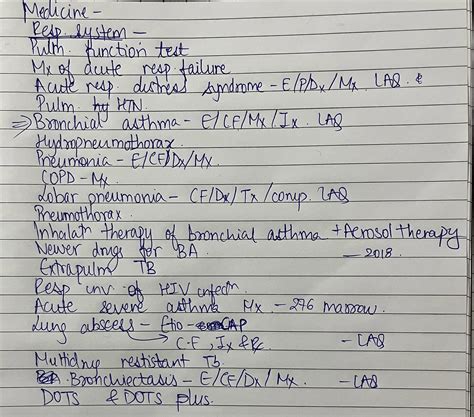 Medicine -
Resp. system -
Pulm. function test
Mx of acute resp. failure
Acute resp. distress syndrome - E/P/Dx/Mx. LAQ
Pulm. hy HTN.
⇒ Bronchial asthma - E/CF/Mx/Ix. LAQ
Hydropneumothorax.
Pneumonia - E/CF/Dx/Mx.
COPD - Mx.
Lobar pneumonia - CF/Dx/Tx/comp. LAQ
Pneumothorax.
Inhalatn therapy of bronchial asthma + Aerosol therapy
Newer drugs for BA - 2018.
Extrapulm TB
Resp inv. of HIV infecn.
Acute severe asthma Mx - 276 marrow.
Lung abscess - Etio - CAP
→ C.F, Ix & Rx - LAQ
Multidrug restistant Tb.
Bronchiectasis - E/CF/Dx/Mx. - LAQ
DOTS & DOTS plus.